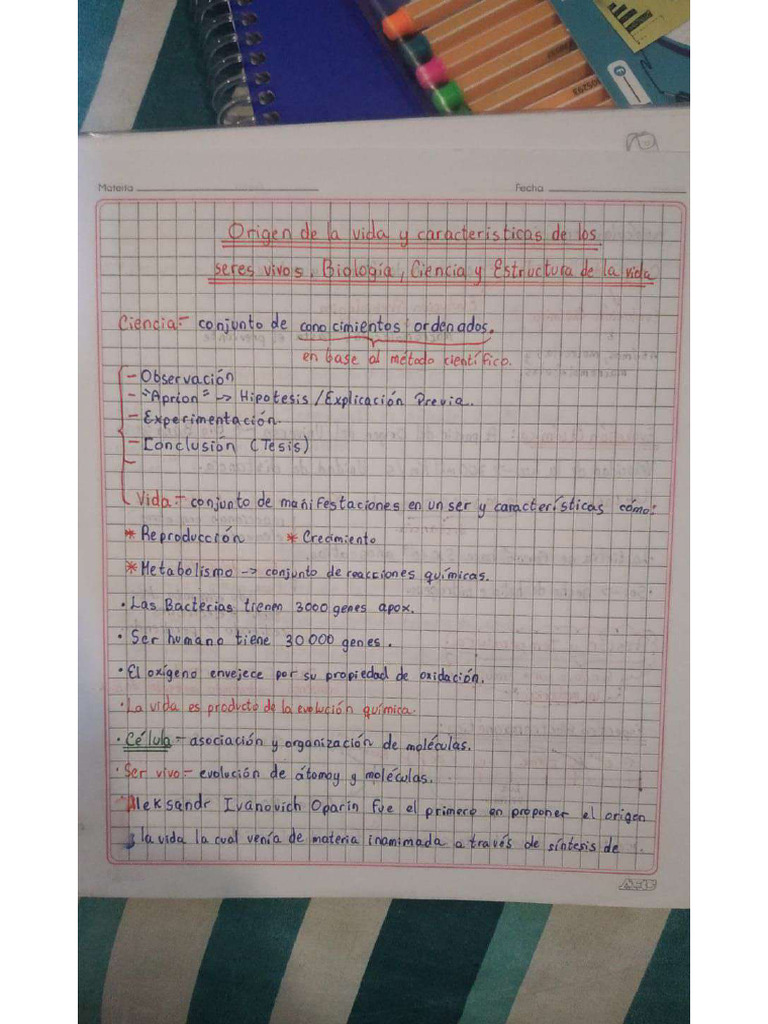 Materia
Fecha
Origen de la vida y características de los
seres vivos, Biología, Ciencia y Estructura de la vida
Ciencia:- conjunto de conocimientos ordenados.
en base al método científico.
- Observación
- "Apriori" -> Hipotesis / Explicación Previa.
- Experimentación.
- Conclusión (Tesis)
-
Vida:- conjunto de manifestaciones en un ser y características cómo:
* Reproducción * Crecimiento
* Metabolismo -> conjunto de reacciones químicas.
· Las Bacterias tienen 3000 genes apox.
· Ser humano tiene 30000 genes.
· El oxígeno envejece por su propiedad de oxidación.
· La vida es producto de la evolución química.
· Célula:- asociación y organización de moléculas.
· Ser vivo:- evolución de átomoy y moléculas.
Aleksandr Ivanovich Oparin fue el primero en proponer el origen
la vida la cual venía de materia inanimada a través de síntesis de